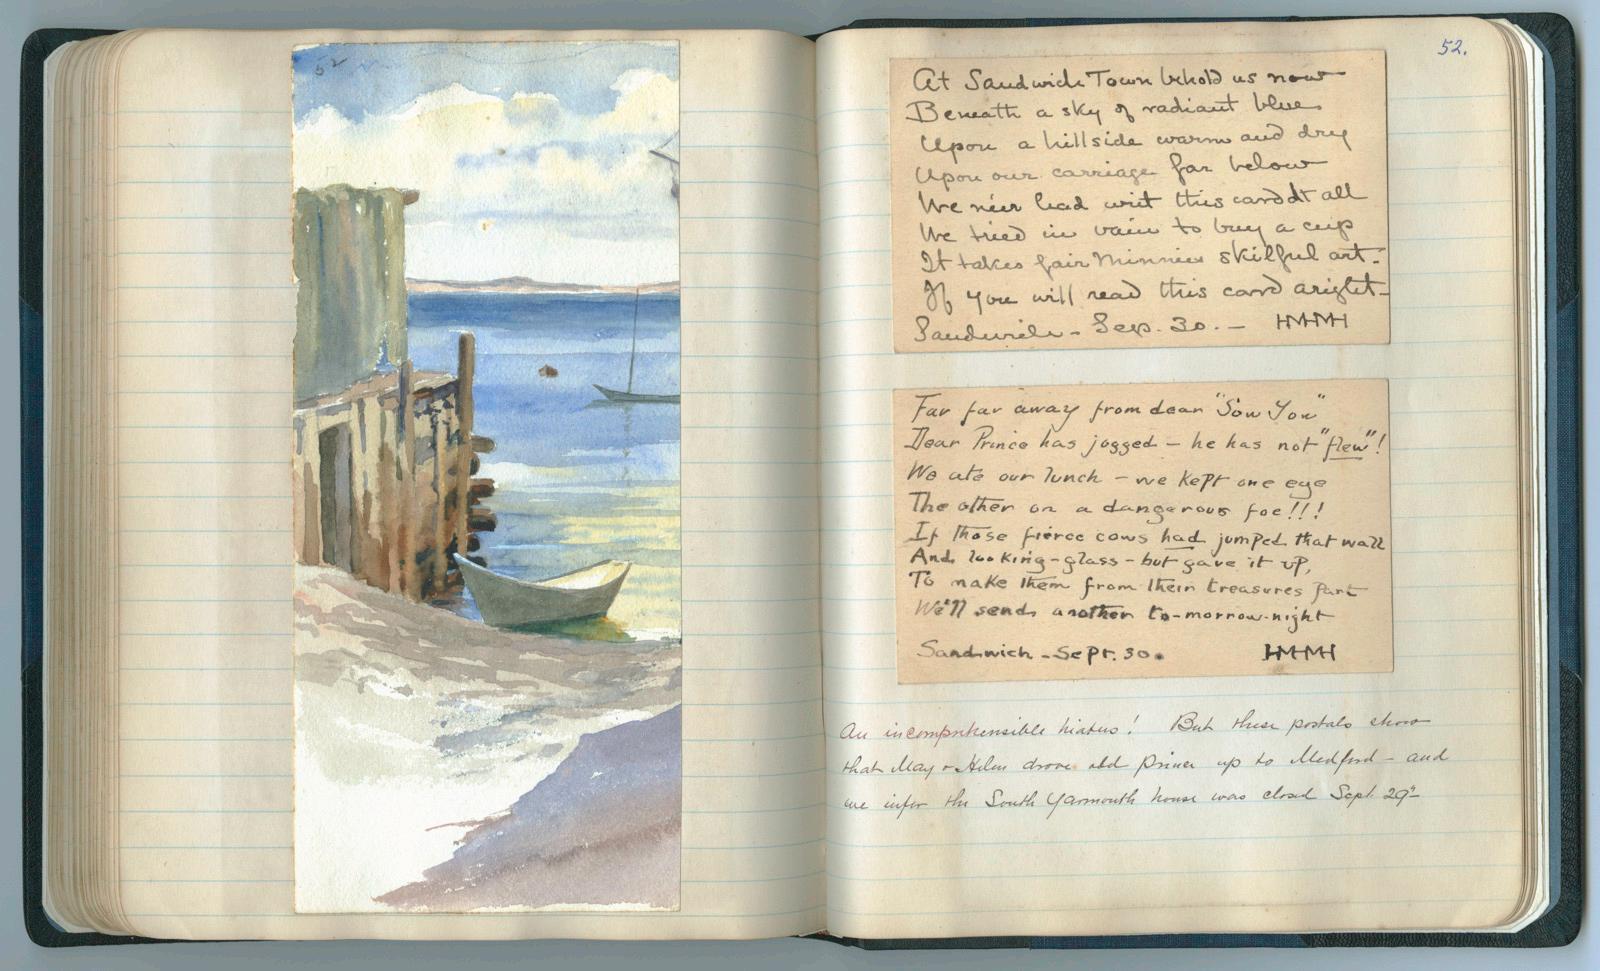 52
52.
At Sandwich Town behold us now
Beneath a sky of radiant blue
Upon a hillside warm and dry
Upon our carriage far below
We n'er had writ this card at all
We tried in vain to buy a cup
It takes fair Minnies skilful art.
If you will read this card aright
Sandwich - Sep. 30. - HMMH
Far far away from dear "Sow Yow"
Dear Prince has jogged - he has not "flew"!
We ate our lunch - we kept one eye
The other on a dangerous foe!!!
If those fierce cows had jumped that wall
And looking-glass - but gave it up,
To make them from their treasures part
We'll send another to-morrow-night
Sandwich - Sept. 30. HMMH
An incomprehensible hiatus! But these postals show
that May + Helen drove old Prince up to Medford - and
we infer the South Yarmouth house was closed Sept 29th